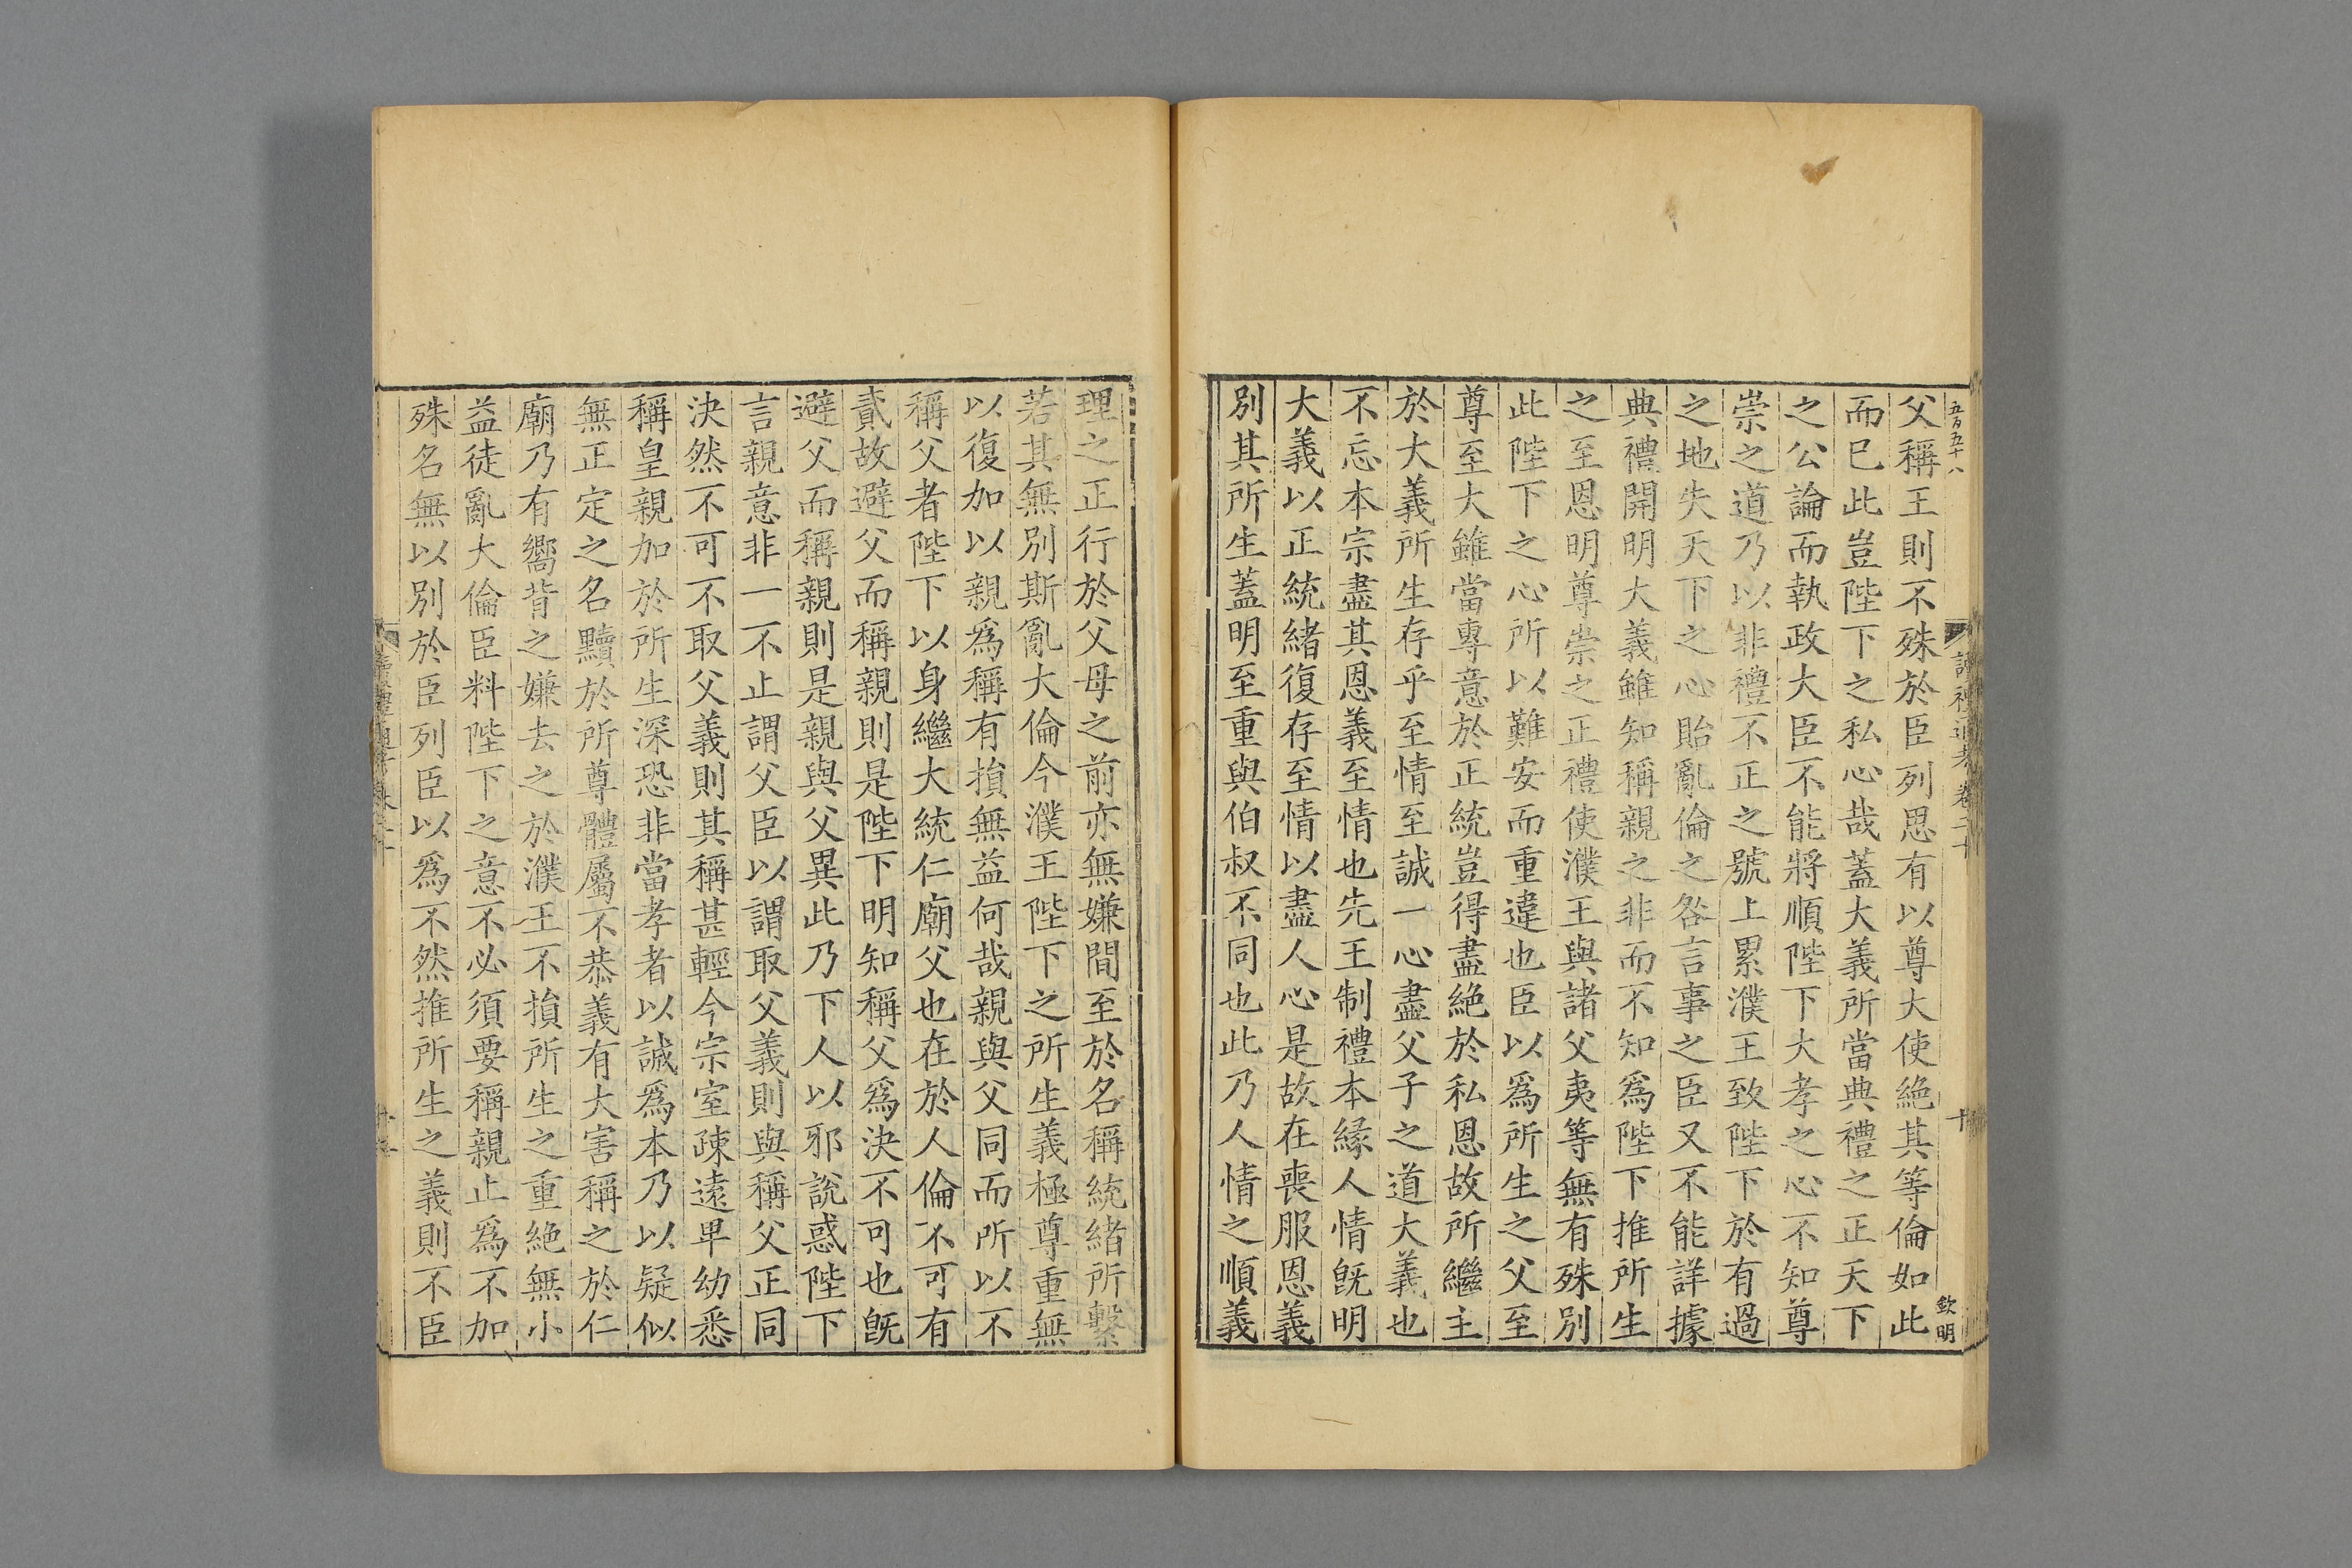 五百五十八
讀禮通考 卷二十
十
欽明
父稱王則不殊於臣列思有以尊大使絶其等倫如此
而已此豈陛下之私心哉蓋大義所當典禮之正天下
之公論而執政大臣不能將順陛下大孝之心不知尊
崇之道乃以非禮不正之號上累濮王致陛下於有過
之地失天下之心貽亂倫之咎言事之臣又不能詳據
典禮開明大義雖知稱親之非而不知爲陛下推所生
之至恩明尊崇之正禮使濮王與諸父夷等無有殊別
此陛下之心所以難安而重違也臣以爲所生之父至
尊至大雖當專意於正統豈得盡絶於私恩故所繼主
於大義所生存乎至情至誠一心盡父子之道大義也
不忘本宗盡其恩義至情也先王制禮本緣人情旣明
大義以正統緒復存至情以盡人心是故在喪服恩義
別其所生蓋明至重與伯叔不同也此乃人情之順義
理之正行於父母之前亦無嫌間至於名稱統緒所繫
若其無別斯亂大倫今濮王陛下之所生義極尊重無
以復加以親爲稱有損無益何哉親與父同而所以不
稱父者陛下以身繼大統仁廟父也在於人倫不可有
貳故避父而稱親則是陛下明知稱父爲決不可也旣
避父而稱親則是親與父異此乃下人以邪說惑陛下
言親意非一不止謂父臣以謂取父義則與稱父正同
決然不可不取父義則其稱甚輕今宗室疎遠卑幼悉
稱皇親加於所生深恐非當孝者以誠爲本乃以疑似
無正定之名黷於所尊體屬不恭義有大害稱之於仁
廟乃有嚮背之嫌去之於濮王不損所生之重絶無小
益徒亂大倫臣料陛下之意不必須要稱親止爲不加
殊名無以別於臣列臣以爲不然推所生之義則不臣